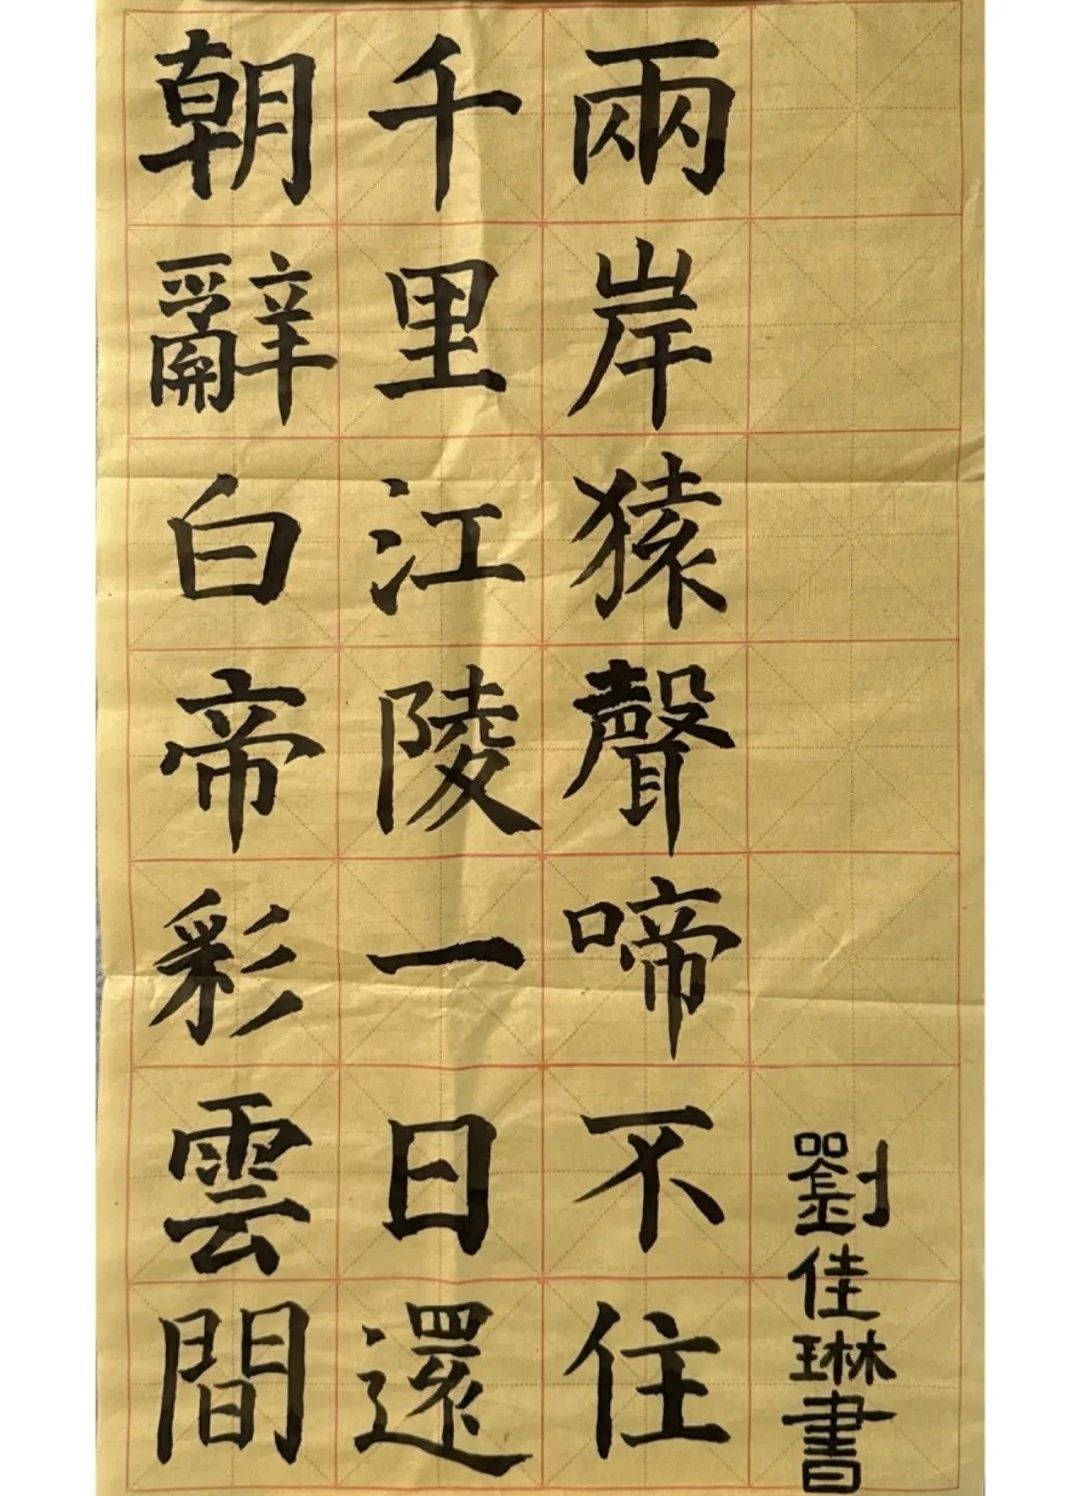 朝辭白帝彩雲間
千里江陵一日還
兩岸猿聲啼不住
劉佳琳書